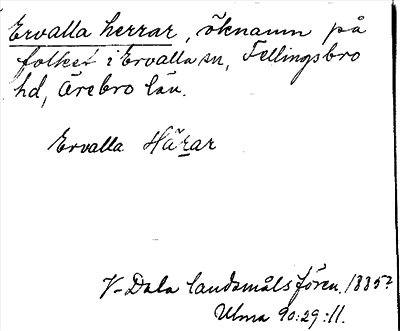 Ervalla herrar, öknamn på
folket i Ervalla sn, Fellingsbro
hd, Örebro län.
Ervalla Härar
V-Dala landsmålsfören. 1885?
Ulma 90:29:11.